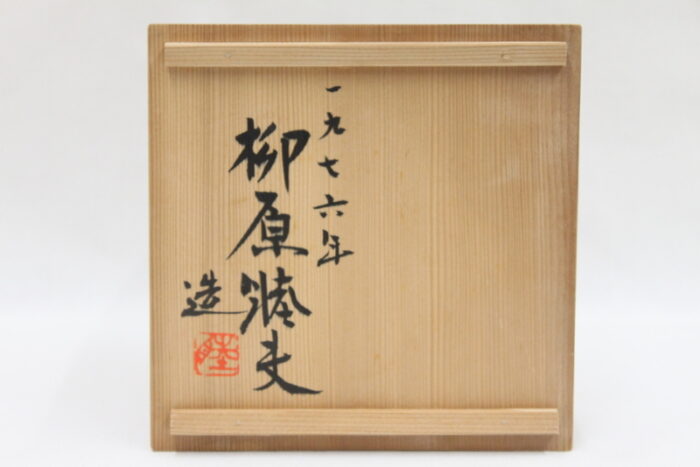 一九七六年
柳原睦夫
造